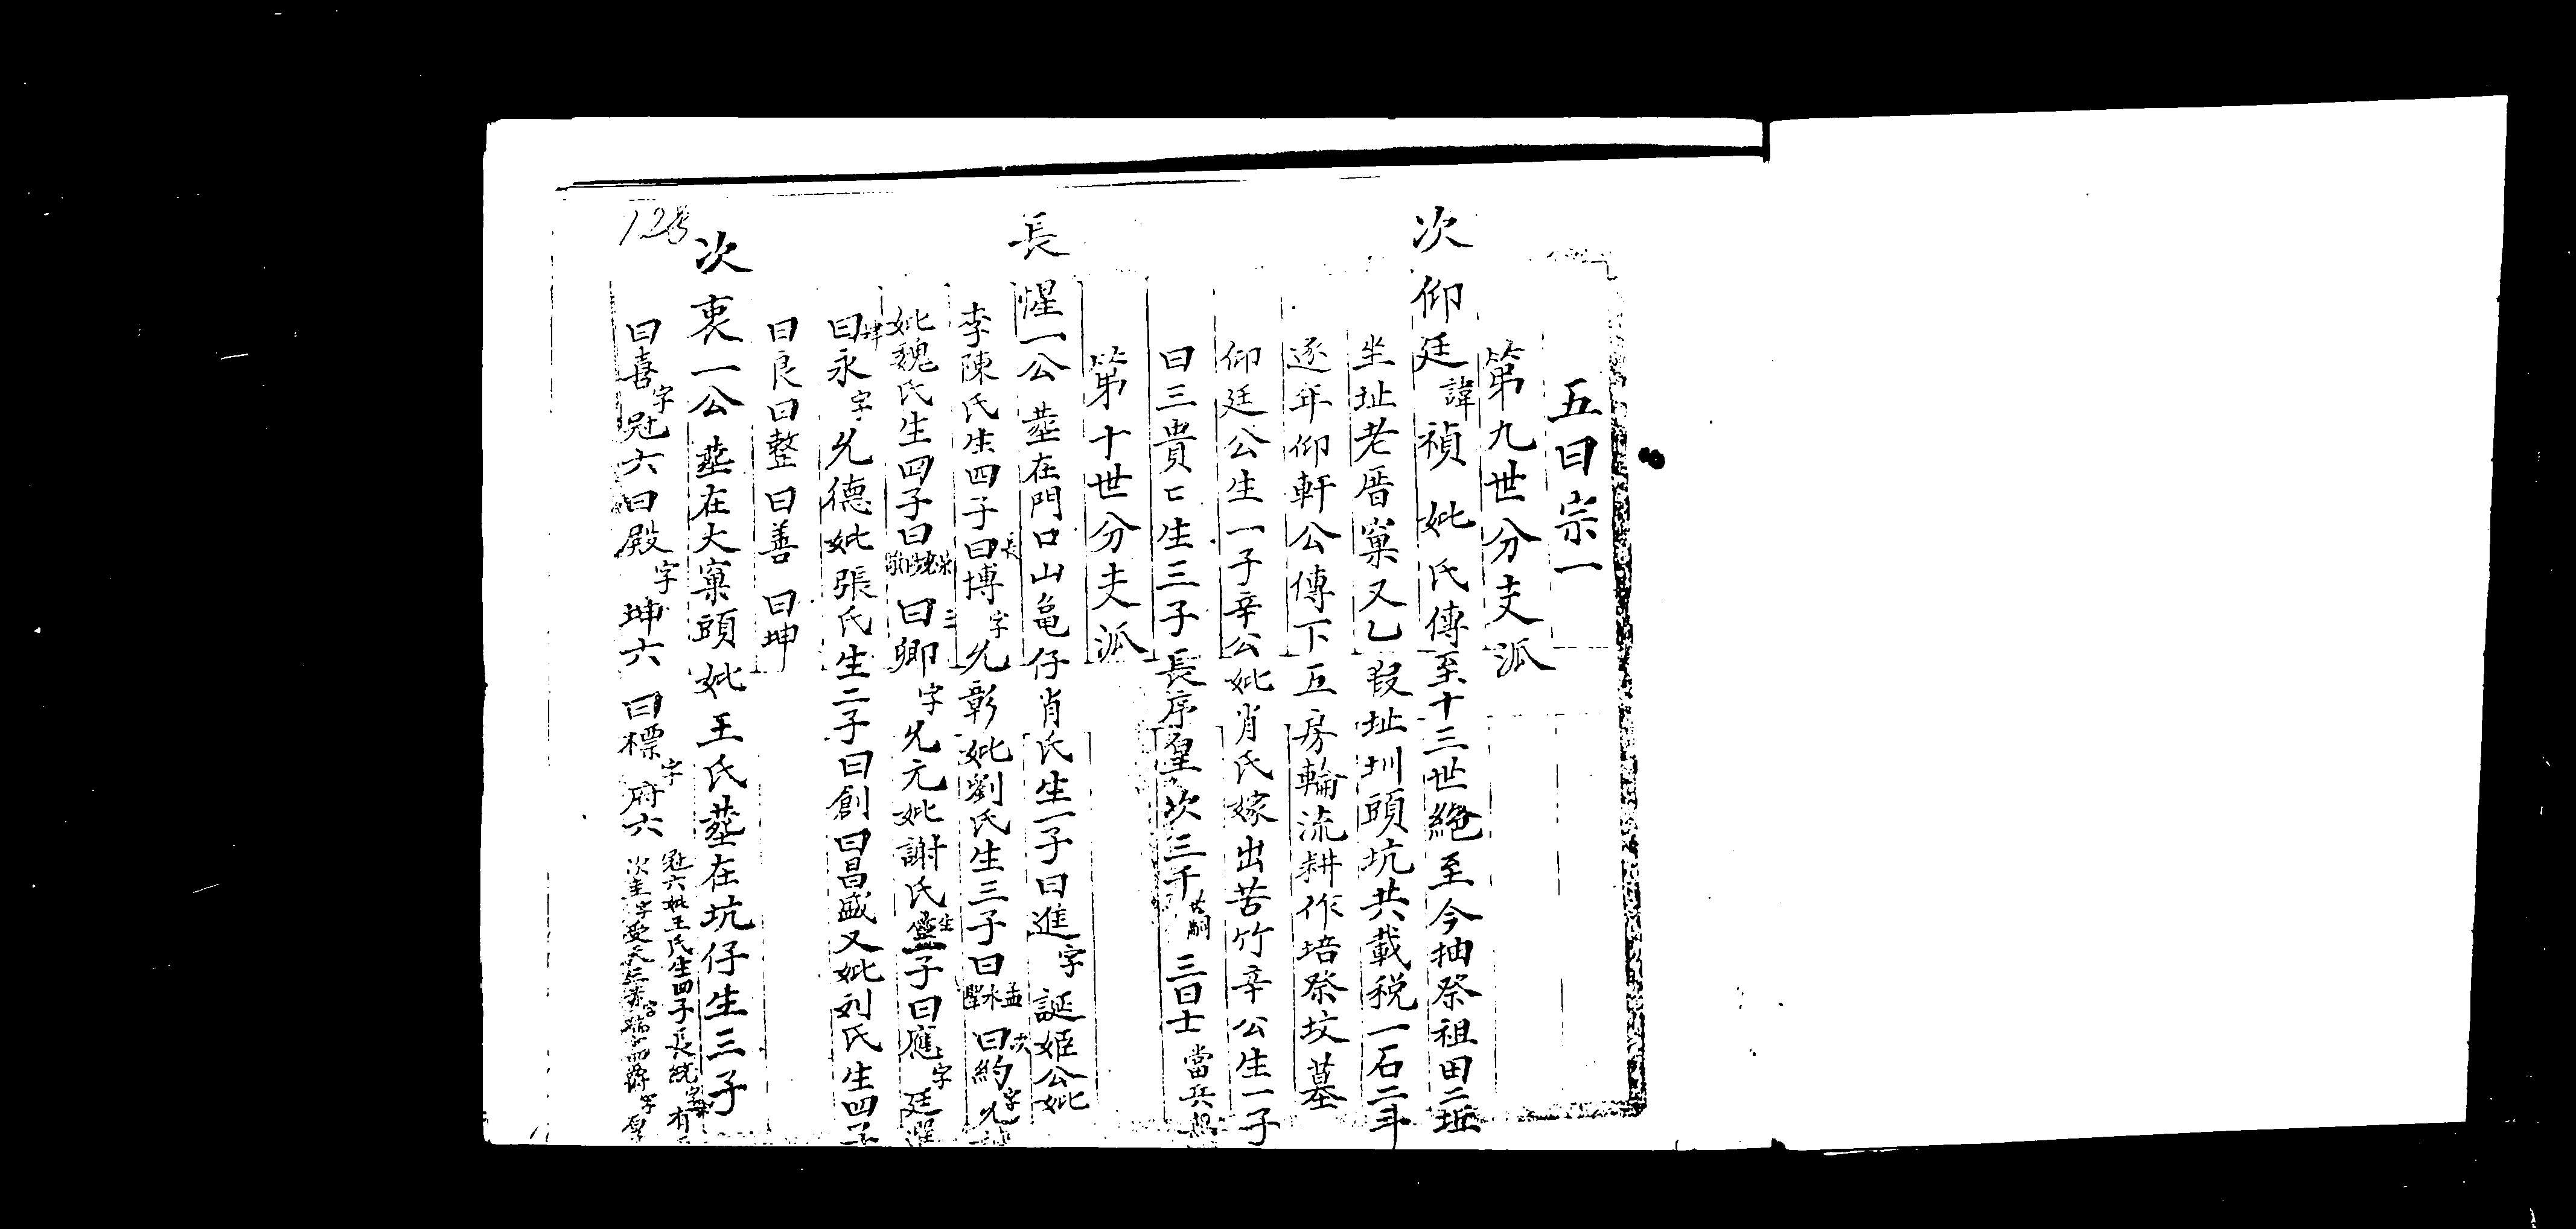 五曰宗一
第九世分支派
次 仰廷 諱禎 妣 氏傳至十三世絕至今抽祭祖田二坵
坐址老厝窠又乙叚址圳頭坑共載税一石二斗
逐年仰軒公傳下五房輪流耕作培祭坟墓
仰廷公生一子辛公妣肖氏嫁出苦竹辛公生一子
曰三貴生三子長序皇次三千 三曰士
第十世分支派
長 惺一公 塟在門口山龟仔肖氏生一子曰進字 誕姬公妣
李陳氏生四子曰博字 允彰妣劉氏生三子曰 曰約字
妣魏氏生四子曰 曰卿字 允元妣謝氏 子曰應字 廷
曰永字允德妣張氏生二子曰創曰昌盛又妣刘氏生四子
曰良曰整曰善 曰坤
次 衷一公 塟在大窠頭妣王氏塟在坑仔生三子
曰喜字冠六曰殿字坤六 曰標字府六 冠六妣王氏生四子長統字有
128